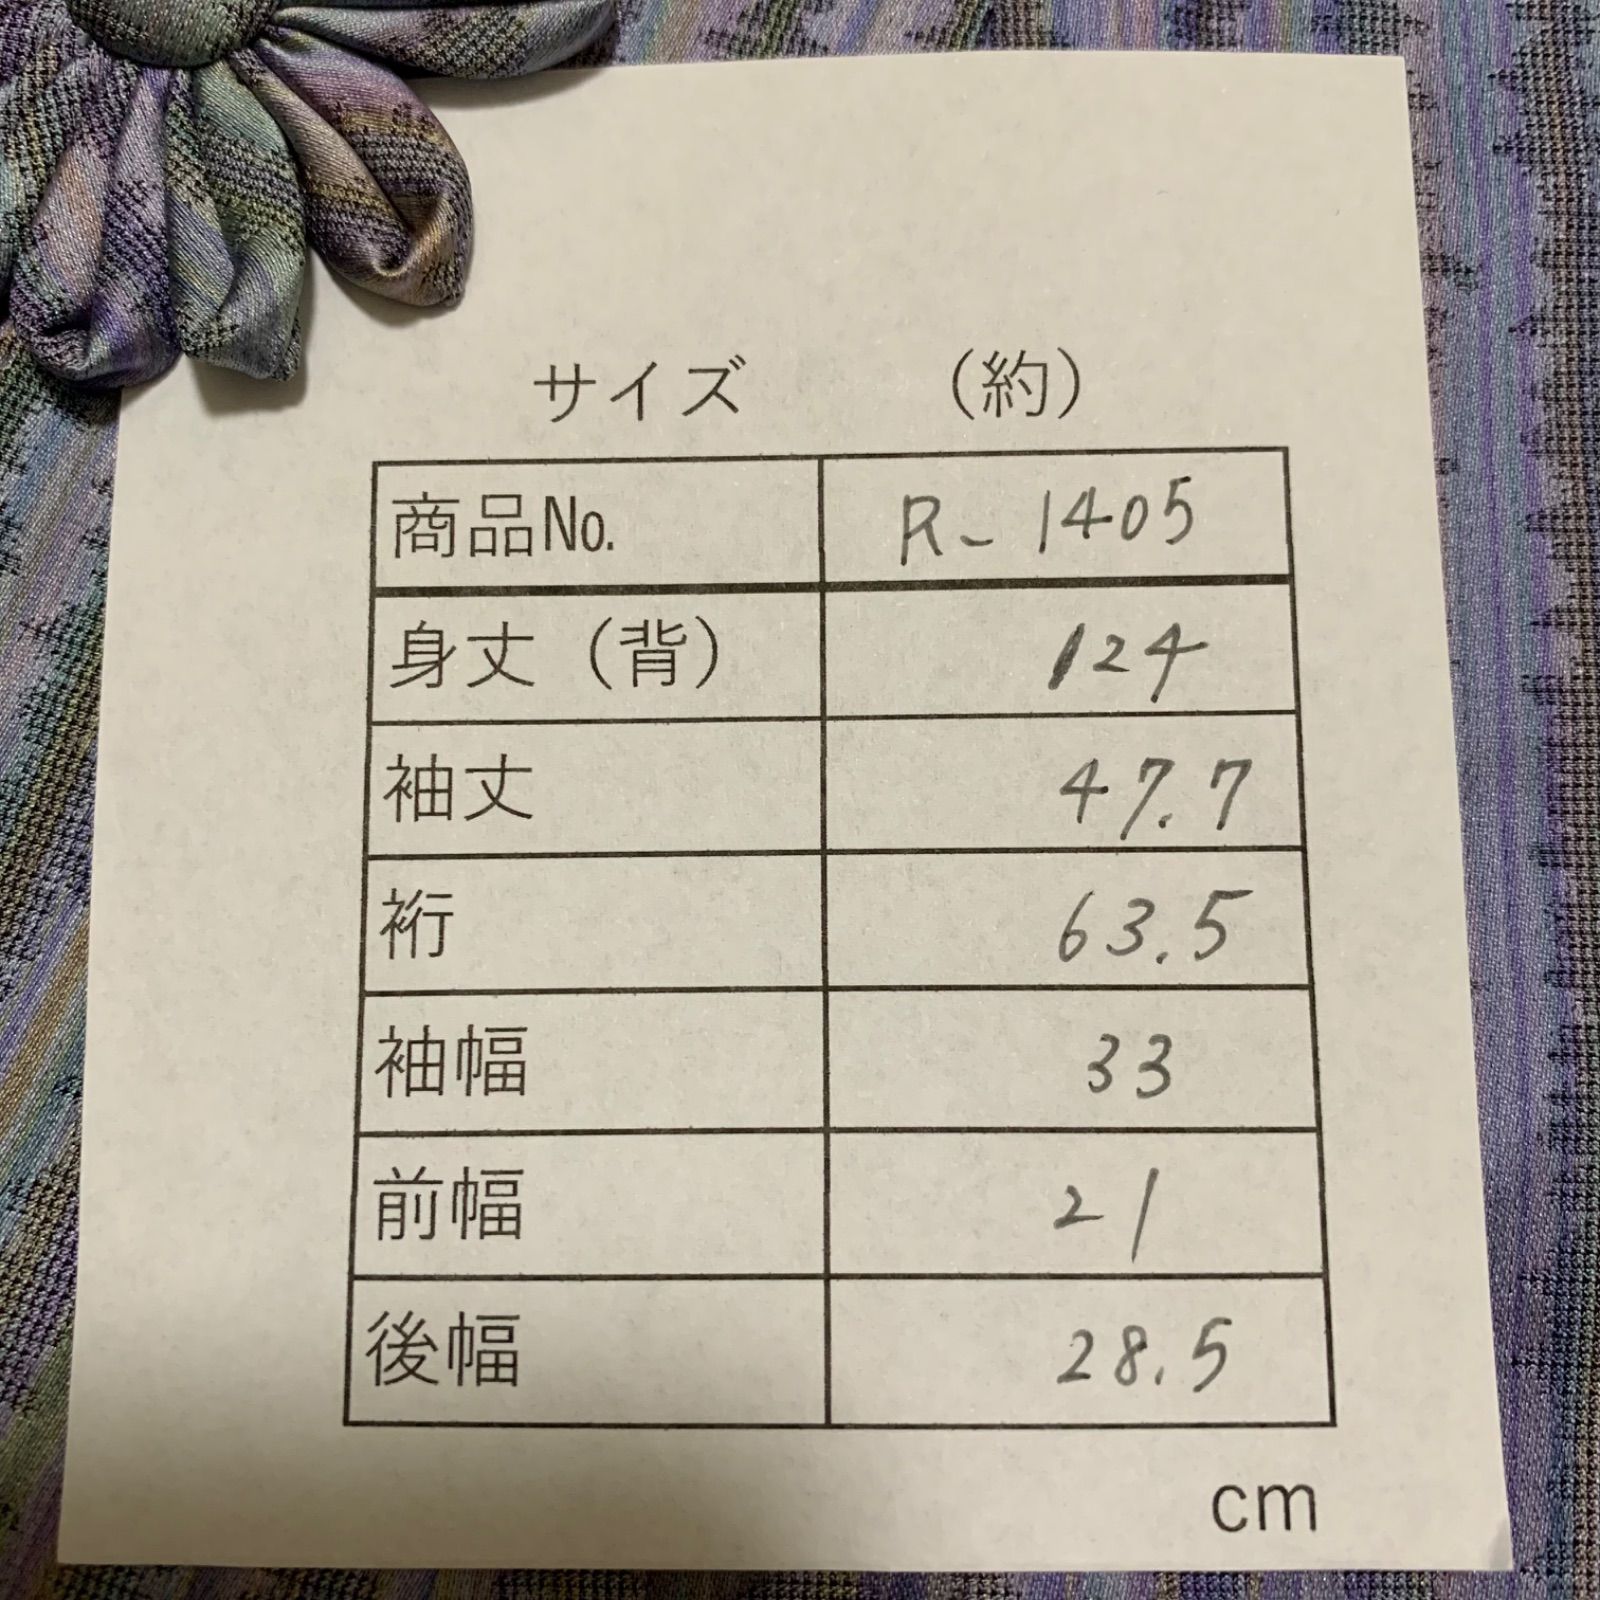 サイズ （約）
商品№ R-1405
身丈（背） 124
袖丈 47.7
裄 63.5
袖幅 33
前幅 21
後幅 28.5
cm